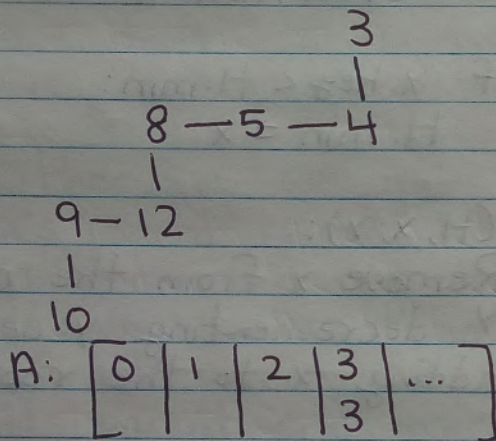 3
8 — 5 — 4
9 — 12
10
A: [0 | 1 | 2 | 3 | ...]
3